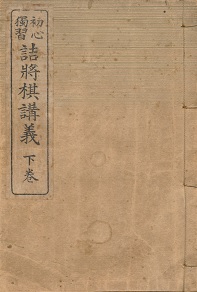 初心
獨習
詰將棋講義
下巻